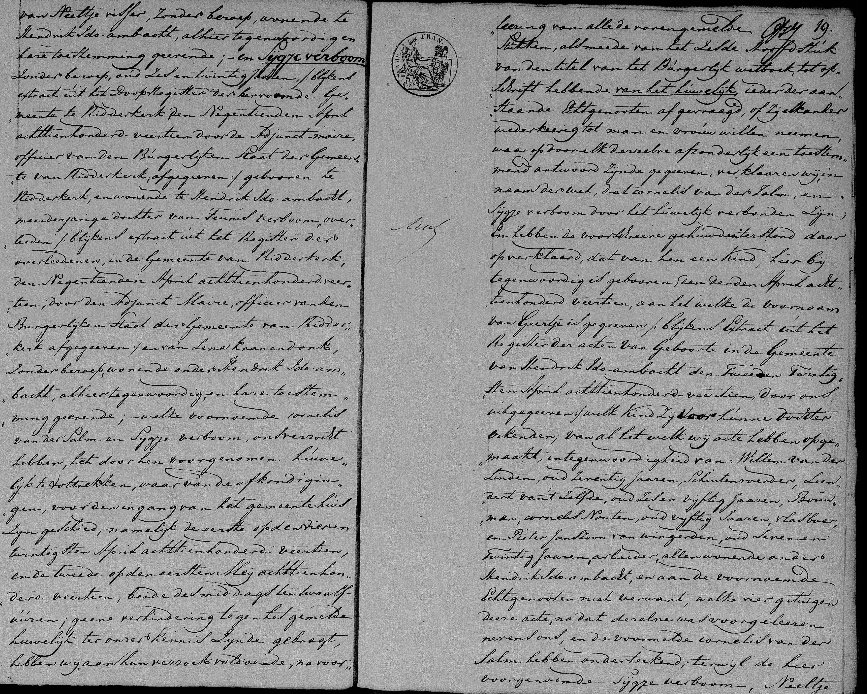 van Neeltje Visser, Zonder beroep, wonende te
Hendrik Ido ambacht, alhier tegenwoordig en
hare toestemming geevende; en Sijgje verboom
Zonder beroep, oud Zes en twintig Jaaren, / blijkens
extract uit het Doop Register der hervormde Ge-
meente te Ridderkerk den Negentienden April
achttienhonderd veertien door de Adjunct maire,
officier van den Burgerlijken Staat der Gemeen-
te van Ridderkerk, afgegeven / gebooren te
Ridderkerk, en wonende te Hendrik Ido ambacht,
meerderjarige dochter van Teunis verboom, over-
leeden / blijkens extract uit het Register der
overledenen, in de Gemeente van Ridderkerk,
den Negentienden April achttienhonderd veer-
tien, door den Adjunct Maire, officier van den
Burgerlijken Staat der Gemeente van Ridder-
kerk afgegeeven / en van Lena
Zonder beroep, wonende onder Hendrik Ido am-
bacht, alhier tegenwoordig en hare toestem-
ming geevende; welke voornoemde Cornelis
van der Salm en Sijgje verboom, ons versocht
hebben, het door hen voorgenomen huwe-
lijk te voltrekken, waar van de afkondigin-
gen, voor den ingang van het gemeente huis
Zijn geschied, namelijk de eerste op den vieren
twintigsten April achttienhonderd veertien,
en de tweede op den eersten Meij achttienhon-
derd veertien, beide des middags ten twaalf
uuren; geene verhindering tegen het gemelde
huwelijk ter onser kennis Zijnde gebragt,
hebben wij aan hun versoek voldoende, na voor-
19.
leesing van alle de vorengemelde
Stukken, als meede van het Zesde Hoofdstuk
van den titel van het Burgerlijk wetboek, tot op-
schrift hebbende van het huwelijk, ieder der aan-
staande Echtgenooten afgevraagd, of Zij elkander
wederkeerig tot man en vrouw willen neemen,
waar op door elk derzelve afzonderlijk een toestem-
mend antwoord Zijnde gegeven, verklaaren wij, in
naam der wet, dat Cornelis van der Salm, en
Sijgje verboom door het huwelijk verbonden Zijn;
En hebben de voorschreere gehuwden ter Stond daar
op verklaard, dat van hen een kind hier bij
tegenwoordig is gebooren den derden April acht-
tienhonderd veertien, aan het welke de voornaam
van Geertje is gegeeven / blijkens Extract uit het
Register der acten van Geboorte in de Gemeente
van Hendrik Ido ambacht den Twee en Twintig-
sten April achttienhonderd veertien, door ons
uitgegeeven / welk kind Zij voor hunne dochter
erkenden, van al het welk wij acte hebben opge-
maakt, in tegenwoordigheid van Willem van der
Linden, oud Zeventig Jaaren, Schuitenvoerder, Leen-
dert van 't Zelfde, oud Zes en vijftig Jaaren,
man, Cornelis Nouten, oud vijftig Jaaren, vlasboer,
en Pieter Janszoon van wingerden, oud Seven en
Twintig Jaaren, arbeider, allen wonende onder
Hendrik Ido ambacht, en aan de voornoemde
Echtgenooten niet verwant, welke vier getuigen
deese acte, na dat deselve was voorgeleesen
nevens ons, en de voormelde Cornelis van der
Salm hebben onderteekend; terwijl de hier
voorgenoemde Sijgje verboom, Neeltje